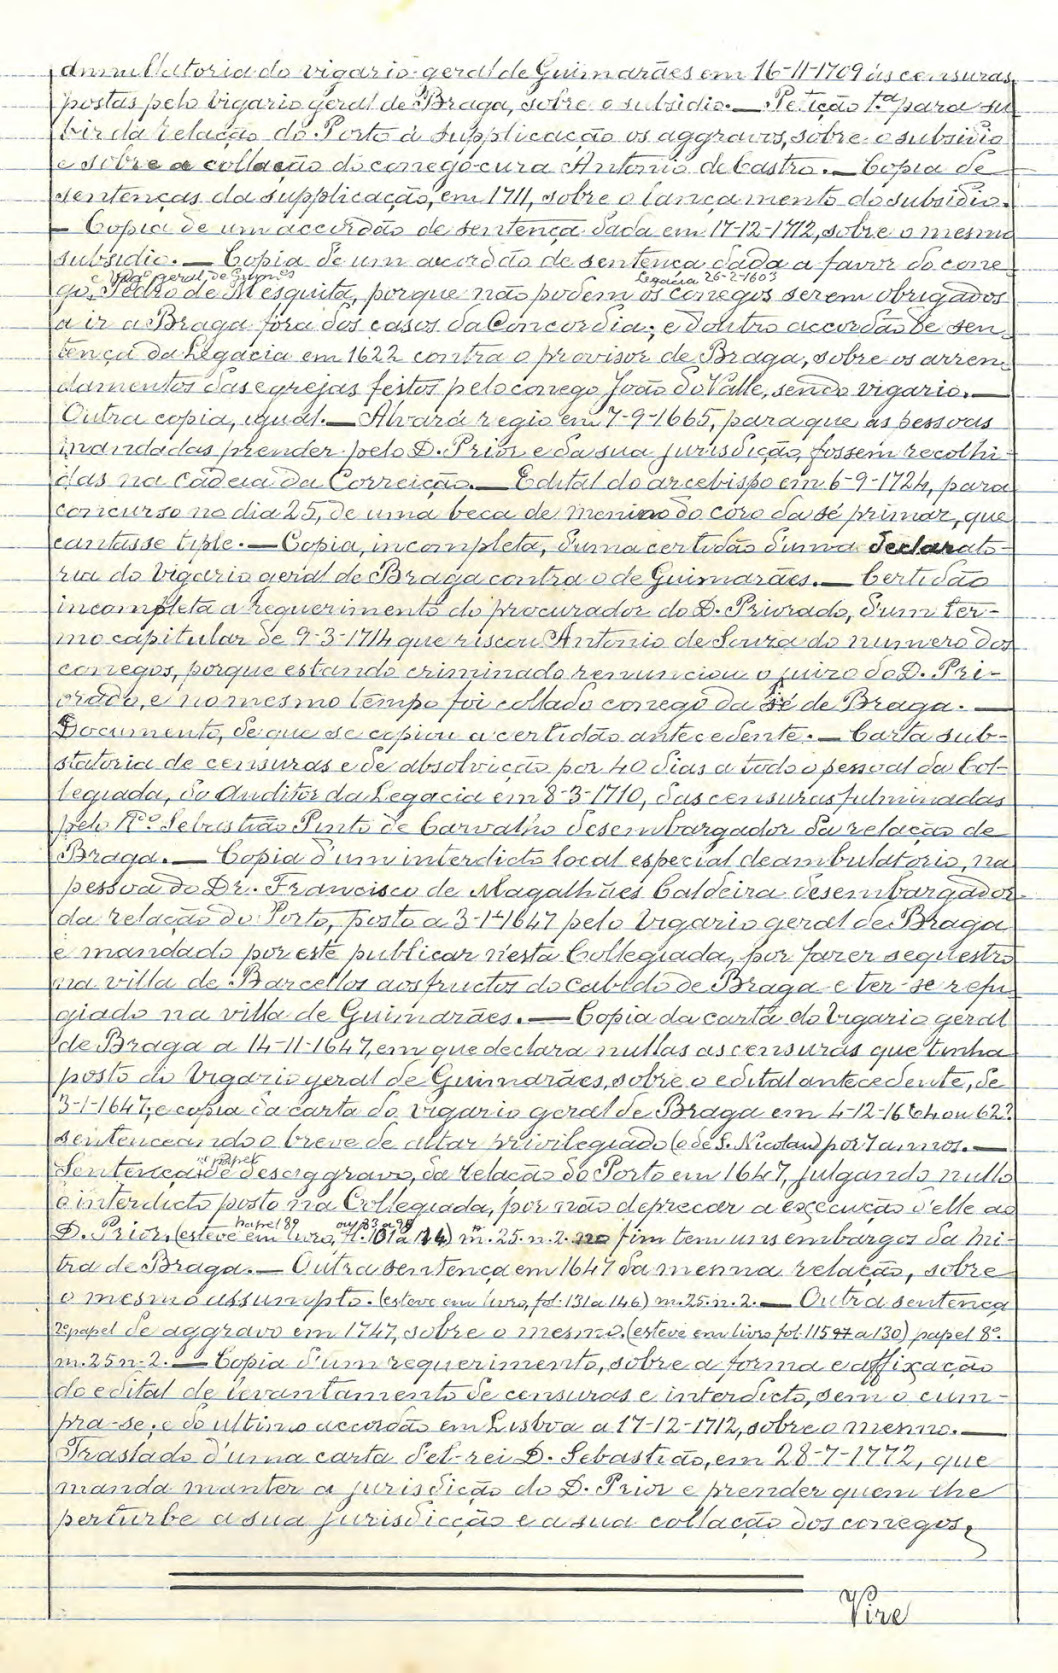 annullatoria do vigario geral de Guimarães em 16-11-1709 ás censuras
postas pelo vigario geral de Braga, sobre o subsidio. — Petição 1.ª para su
bir da relação do Porto á supplicação os aggravos, sobre o subsidio
e sobre a collação do conego cura Antonio de Castro. — Copia de
sentenças da supplicação, em 1711, sobre o lançamento do subsidio.
— Copia de um accordão de sentença dada em 17-12-1712, sobre o mesmo
subsidio. — Copia de um accordão de sentença dada a favor do cone
e vig.º geral de Guim.es Legacia 26-2-1603
go, Pedro de Mesquita, porque não podem os conegos serem obrigados
a ir a Braga fóra dos casos da Concordia; e doutro accordão de sen
tença da Legacia em 1622 contra o provisor de Braga, sobre os arren
damentos das egrejas feitos pelo conego João do Valle, sendo vigario. —
Outra copia, igual. — Alvará regio em 7-9-1665, para que as pessoas
mandadas prender pelo D. Prior e da sua jurisdição, fossem recolhi-
das na cadeia da Correição. — Edital do arcebispo em 6-9-1724, para
concurso no dia 25, de uma beca de menino do coro da sé primaz, que
cantasse tiple. — Copia, incompleta, duma certidão duma declarato-
ria do vigario geral de Braga contra o de Guimarães. — Certidão
incompleta a requerimento do procurador do D. Priorado, d'um ter-
mo capitular de 9-3-1714 que riscou Antonio de Souza do numero dos
conegos, porque estando criminado renunciou o juizo do D. Pri-
orado, e no mesmo tempo foi collado conego da sé de Braga. —
Documento, de que se copiou a certidão antecedente. — Carta sub-
statoria de censuras e de absolvição por 40 dias a todo o pessoal da Col-
legiada, do Auditor da Legacia em 8-3-1710, das censuras fulminadas
pelo R.do Sebastião Pinto de Carvalho desembargador da relação de
Braga. — Copia d'um interdicto local especial deambulatorio, na
pessoa do Dr. Francisco de Magalhães Caldeira desembargador
da relação do Porto, posto a 3-11-1647 pelo vigario geral de Braga
e mandado por este publicar n'esta Collegiada, por fazer sequestro
na villa de Barcellos aos fructos do cabido de Braga e ter-se refu
giado na villa de Guimarães. — Copia da carta do Vigario geral
de Braga a 14-11-1647, em que declara nullas as censuras que tinha
posto do Vigario geral de Guimarães, sobre o edital antecedente, de
3-1-1647; e copia da carta do vigario geral de Braga em 4-12-1664 ou 62?
sentenceando o breve de altar privilegiado (o de S. Nicolau) por 7 annos. —
papel
Sentença de desaggravo, da relação do Porto em 1647, julgando nullo
o interdicto posto na Collegiada, por não deprecar a execução d'elle ao
papel 89 ou 83 a 98
D. Prior, (esteve em livro, fl. 101 a 114) m. 25. n. 2. no fim tem uns embargos da mi-
tra de Braga. — Outra sentença em 1647 da mesma relação, sobre
o mesmo assumpto. (esteve em livro, fol. 131 a 146) m. 25. n. 2. — Outra sentença
2º papel de aggravo em 1747, sobre o mesmo. (esteve em livro fol. 115 a 130) papel 8º.
m. 25 n. 2. — Copia d'um requerimento, sobre a forma e affixação
do edital de levantamento de censuras e interdicto, sem o cum-
pra-se; e do ultimo accordão em Lisboa a 17-12-1712, sobre o mesmo. —
Traslado d'uma carta d'el-rei D. Sebastião, em 28-7-1772, que
manda manter a jurisdição do D. Prior e prender quem lhe
perturbe a sua jurisdicção e a sua collação dos conegos.
Vire